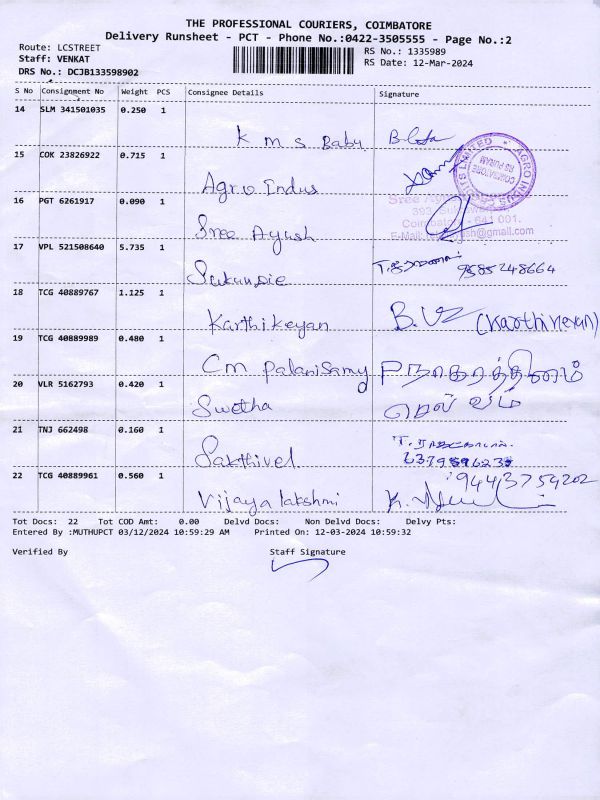 THE PROFESSIONAL COURIERS, COIMBATORE
Delivery Runsheet - PCT - Phone No.:0422-3505555 - Page No.:2
Route: LCSTREET
RS No.: 1335989
Staff: VENKAT
RS Date: 12-Mar-2024
DRS No.: DCJB133598902
S No Consignment No Weight PCS Consignee Details Signature
14 SLM 341501035 0.250 1
K M S Babu
15 COK 23826922 0.715 1
Agro Indus
16 PGT 6261917 0.090 1
Sree Ayush
17 VPL 521508640 5.735 1
9585248664
18 TCG 40889767 1.125 1
Karthikeyan (Karthikeyan)
19 TCG 40889989 0.480 1
Cm Palanisamy P நாகரத்தினம்
20 VLR 5162793 0.420 1
Swetha செல்வம்
21 TNJ 662498 0.160 1
Sakthivel
22 TCG 40889961 0.560 1
9443754202
Vijaya lakshmi
Tot Docs: 22 Tot COD Amt: 0.00 Delvd Docs: Non Delvd Docs: Delvy Pts:
Entered By :MUTHUPCT 03/12/2024 10:59:29 AM Printed On: 12-03-2024 10:59:32
Verified By Staff Signature